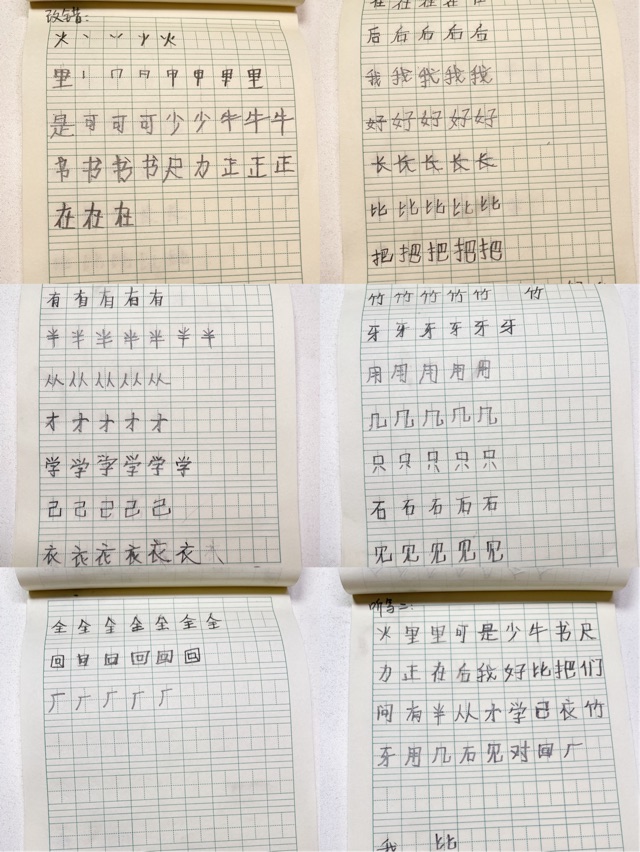 改错:
火丶丷少火
里丨冂日甲甲甲里
是可可可少少牛牛牛
书书书书尺力正正正
在在在
在在在在在
后后后后后
我我我我我
好好好好好
长长长长长
比比比比比
把把把把把
有有有有有
半半半半半半半
从从从从从
才才才才才
学学学学学学
己己己己己
衣衣衣衣衣衣
竹竹竹竹竹 竹
牙牙牙牙牙牙
用用用用用
几几几几几
只只只只只
石石石石石
见见见见见
全全全全全全全
回回回回回回
厂厂厂厂厂
听写二:
火里里可是少牛书尺
力正在后我好比把们
问有半从才学己衣竹
牙用几石见对回厂
我 比